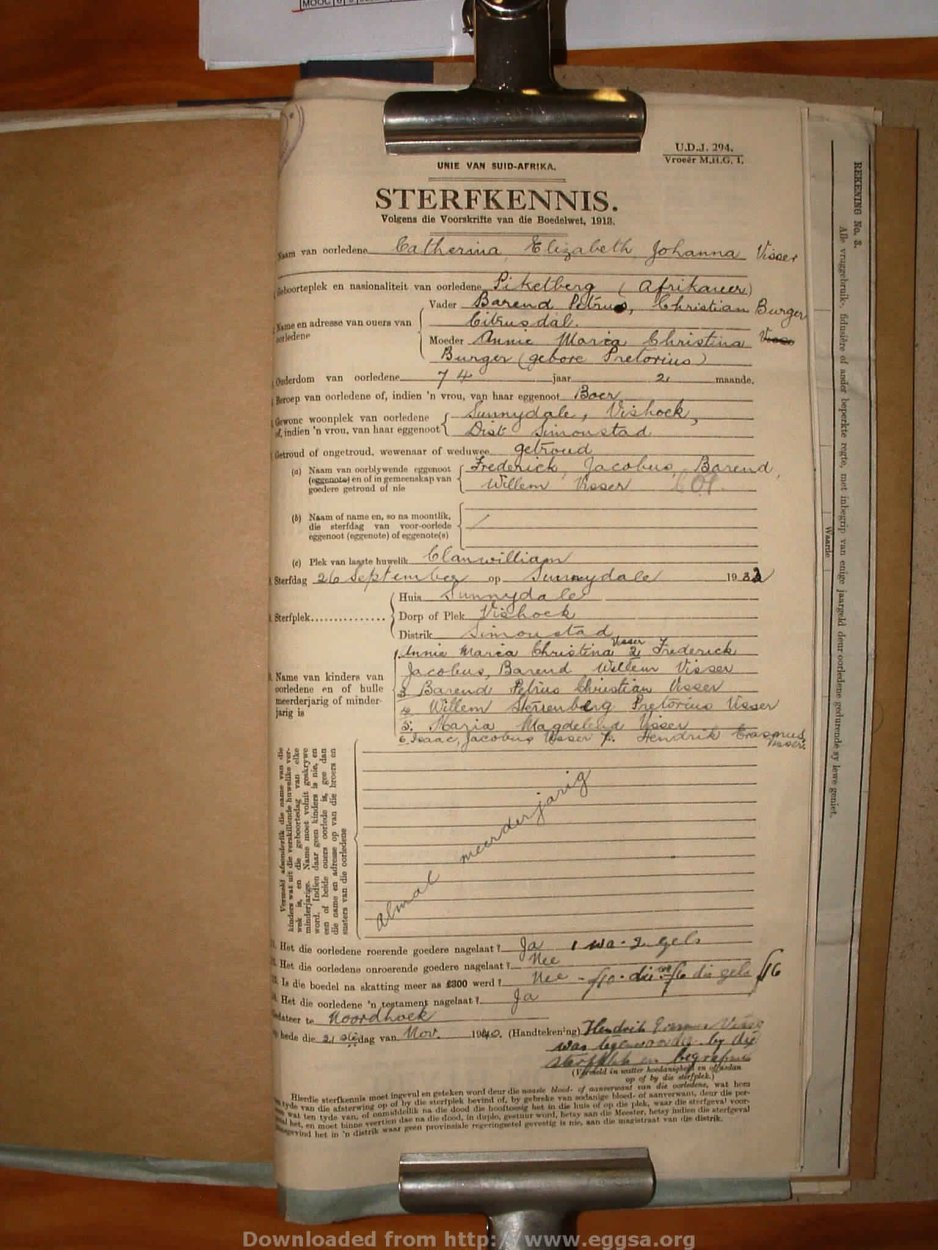 MOOC 6
U.D.J. 294.
Vroeër M.H.G. 1.
UNIE VAN SUID-AFRIKA.
STERFKENNIS.
Volgens die Voorskrifte van die Boedelwet, 1913.
Naam van oorledene Catherina Elizabeth Johanna Visser
Geboorteplek en nasionaliteit van oorledene Piketberg (Afrikaner)
Name en adresse van ouers van oorledene
Vader Barend Petrus, Christian Burger
Citrusdal.
Moeder Annie Maria Christina
Burger (gebore Pretorius)
Ouderdom van oorledene 74 jaar 2 maande.
Beroep van oorledene of, indien 'n vrou, van haar eggenoot Boer
Gewone woonplek van oorledene of, indien 'n vrou, van haar eggenoot
Sunnydale, Vishoek,
Dist Simonstad
Getroud of ongetroud, wewenaar of weduwee getroud
(a) Naam van oorblywende eggenoot (eggenote) en of in gemeenskap van goedere getroud of nie
Frederick, Jacobus, Barend,
Willem Visser
(b) Naam of name en, so na moontlik, die sterfdag van voor-oorlede eggenoot (eggenote) of eggenote(s)
(c) Plek van laaste huwelik Clanwilliam
Sterfdag 26 September op Sunnydale 193
Sterfplek
Huis Sunnydale
Dorp of Plek Vishoek
Distrik Simonstad
Name van kinders van oorledene en of hulle meerderjarig of minderjarig is
1. Annie Maria Christina Visser 2. Frederick
Jacobus, Barend Willem Visser
3. Barend Petrus Christian Visser
4. Willem Sterrenberg Pretorius Visser
5. Maria Magdelena Visser
6. Isaac, Jacobus Visser 7. Hendrik Erasmus Visser.
Vermeld afsonderlik die name van die
kinders wat uit die verskillende huwelike verwek
is, en die geboortedag van elke
minderjarige. Name moet voluit geskrywe
word. Indien daar geen kinders is nie, en
een of beide ouers oorlede is, gee dan
die name en adresse op van die broers en
susters van die oorledene
almal meerderjarig
11. Het die oorledene roerende goedere nagelaat? Ja 1 wa - 2 gels
12. Het die oorledene onroerende goedere nagelaat? Nee
13. Is die boedel na skatting meer as £300 werd? Nee - £10 - die wa £6 die gels £16
14. Het die oorledene 'n testament nagelaat? Ja
Gedateer te Noordhoek
op hede die 21 ste dag van Nov. 1940. (Handtekening) Hendrik Erasmus Visser
was teenwoordig by die
sterfplek en begrafnis
(Vermeld in watter hoedanigheid en of aardan
op of by die sterfplek.)
Hierdie sterfkennis moet ingevul en geteken word deur die naaste bloed- of aanverwant van die oorledene, wat hom
ten tyde van die afsterwing op of by die sterfplek bevind of, by gebreke van sodanige bloed- of aanverwant, deur die persoon
wat ten tyde van, of onmiddellik na die dood die hooftoesig het in die huis of op die plek, waar die sterfgeval voorgeval
het, en moet binne veertien dae na die dood, in duplo, gestuur word, hetsy aan die Meester, hetsy indien die sterfgeval
voorgeval het in 'n distrik waar geen provinsiale regeringsetel gevestig is nie, aan die magistraat van die distrik.
REKENING No. 3.
Alle vruggebruik-, fidusiêre of ander beperkte regte, met inbegrip van enige jaargeld deur oorledene gedurende sy lewe geniet.
Waarde
Downloaded from http://www.eggsa.org